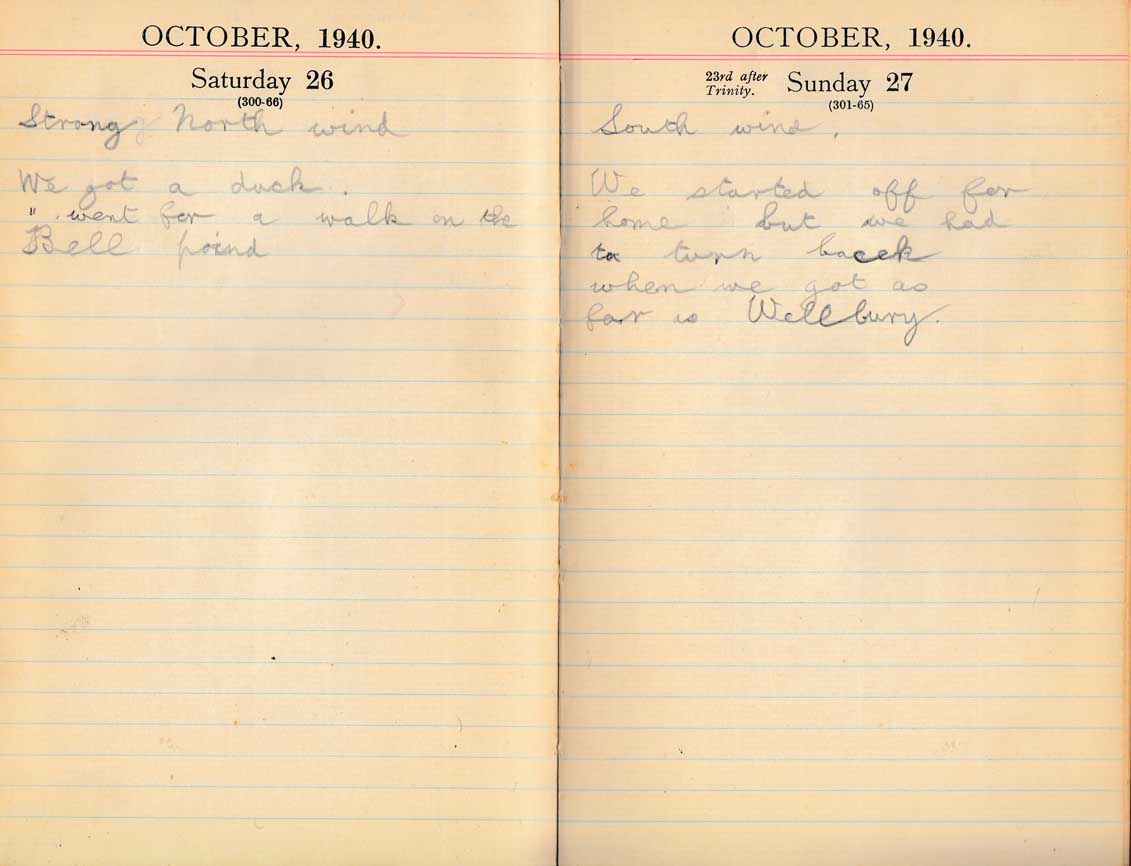 OCTOBER, 1940.
Saturday 26
(300-66)
Strong North wind
We got a duck.
" went for a walk on the
Bell poind
OCTOBER, 1940.
23rd after
Trinity.
Sunday 27
(301-65)
South wind.
We started off for
home but we had
to turn bacek
when we got as
far is Wellbury.